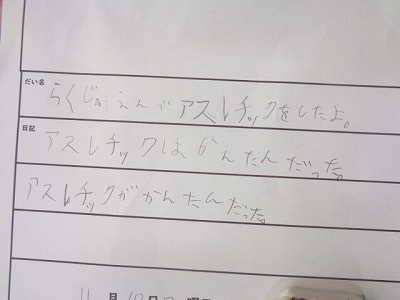 だい名 らくじゅえんでアスレチックをしたよ。
日記 アスレチックはかんたんだった。
アスレチックがかんたんだった。
月